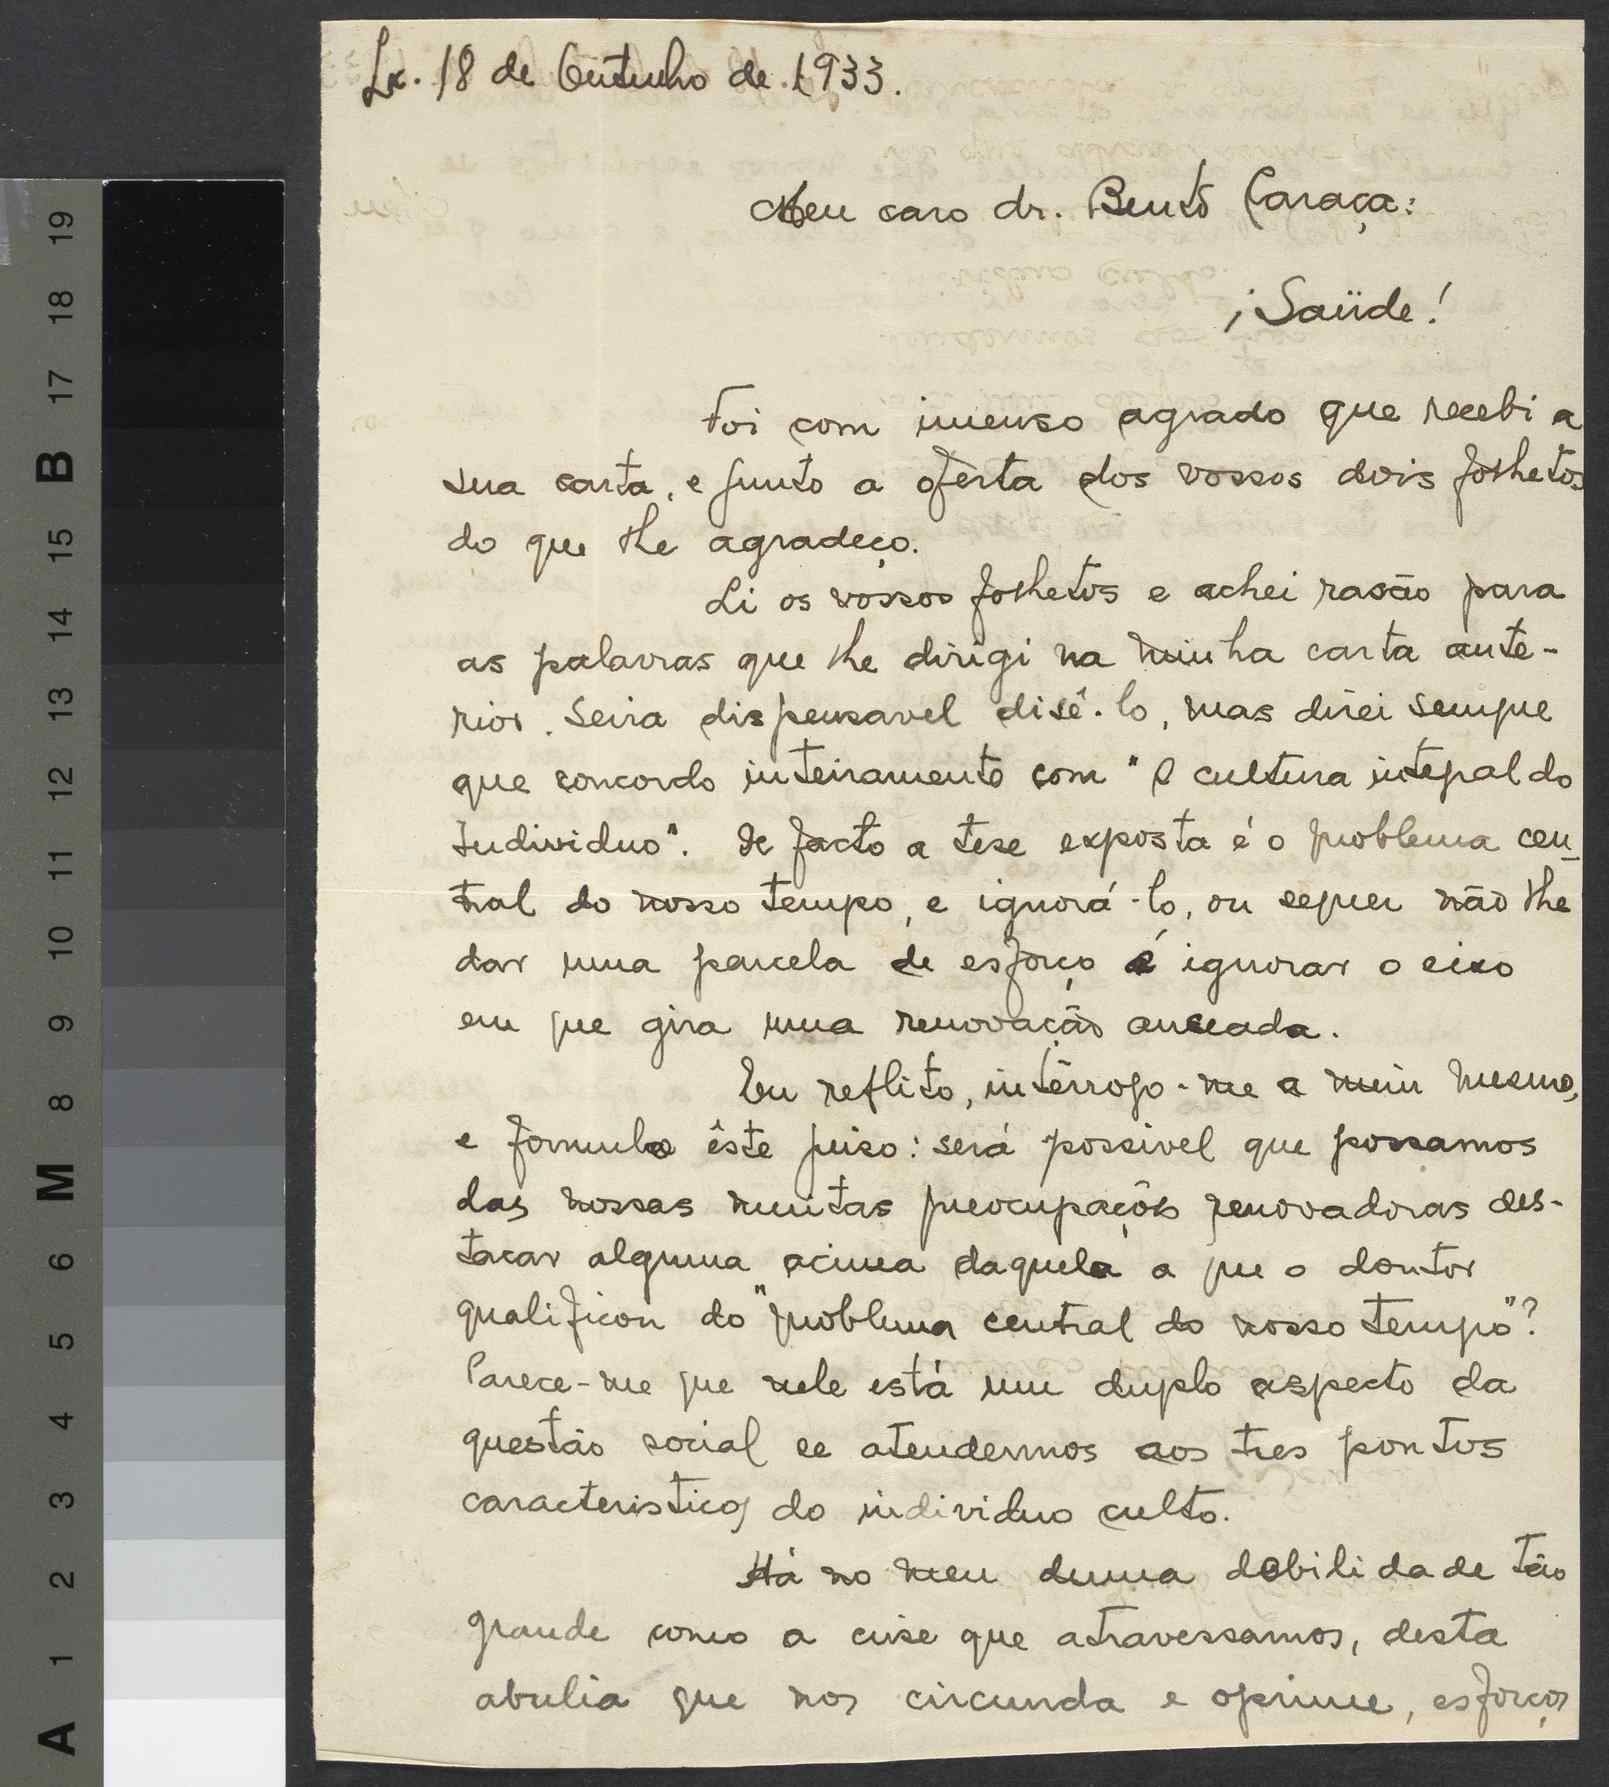 Lx. 18 de Outubro de 1933.
Meu caro dr. Bento Caraça:
¡Saüde!
Foi com imenso agrado que recebi a
sua carta, e junto a oferta dos vossos dois folhetos
do que lhe agradeço.
Li os vossos folhetos e achei rasão para
as palavras que lhe dirigi na minha carta ante-
rior. Seria dispensavel disê-lo, mas direi sempre
que concordo inteiramente com "A cultura integral do
Individuo". De facto a tese exposta é o problema cen-
tral do nosso tempo, e ignorá-lo, ou sequer não lhe
dar uma parcela de esforço é ignorar o eixo
em que gira uma renovação anseada.
Eu reflito, intèrrogo-me a mim mesmo,
e formulo êste juiso: será possivel que possamos
das nossas muitas preocupações renovadoras des-
tacar alguma acima daquela a que o doutor
qualificou do "problema central do nosso tempo"?
Parece-me que nele está um duplo aspecto da
questão social se atendermos aos tres pontos
caracteristicos do individuo culto.
Há no meu duma debilidade tão
grande como a crise que atravessamos, desta
abulia que nos circunda e oprime, esforços
19
18
17
B
16
15
14
13
12
11
10
9
8
M
6
5
4
3
2
1
A